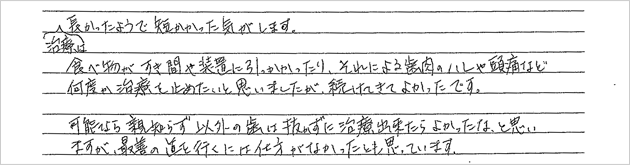 治療は長かったようで短かかった気がします。
食べ物がすき間や装置に引っかかったり、それによる歯肉のハレや頭痛など
何度か治療を止めたいと思いましたが、続けてきてよかったです。
可能なら親知らず以外の歯は抜かずに治療出来たらよかったな、と思い
ますが、最善の道を行くには仕方がなかったとも思っています。